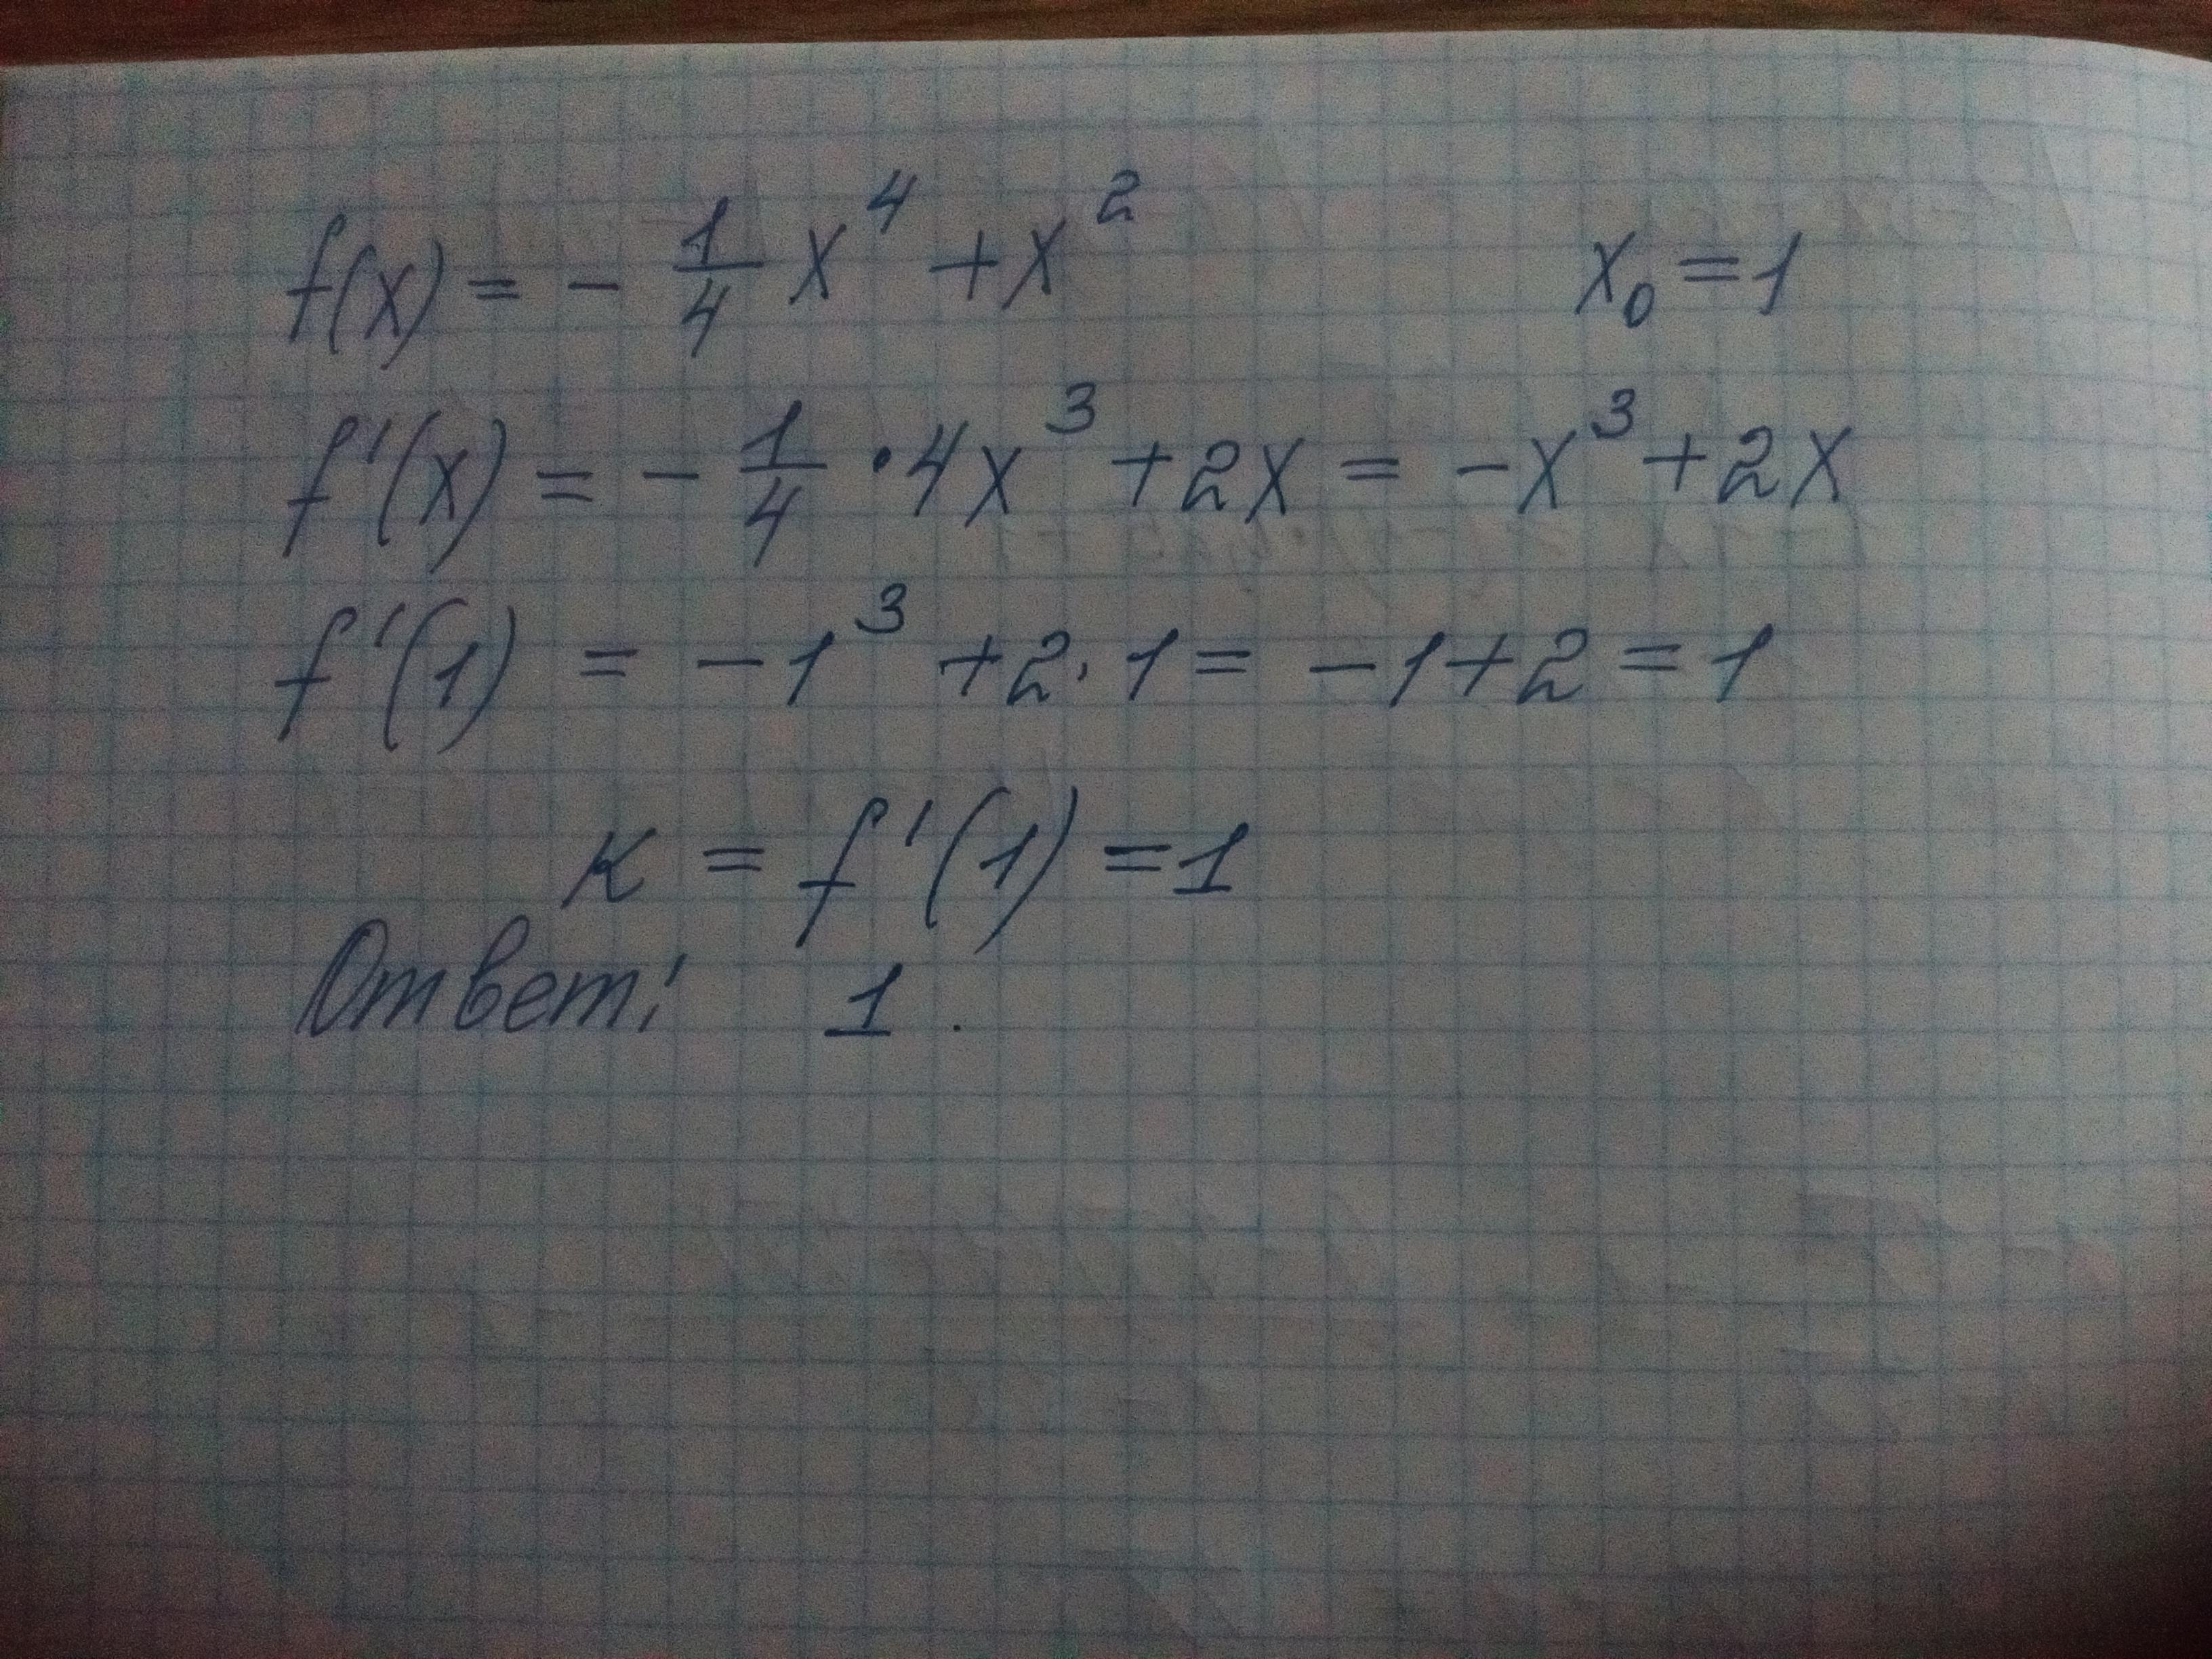 f(x) = - 1/4 x⁴ + x²    x₀ = 1
f'(x) = - 1/4 · 4x³ + 2x = -x³ + 2x
f'(1) = -1³ + 2 · 1 = -1 + 2 = 1
к = f'(1) = 1
Ответ: 1.